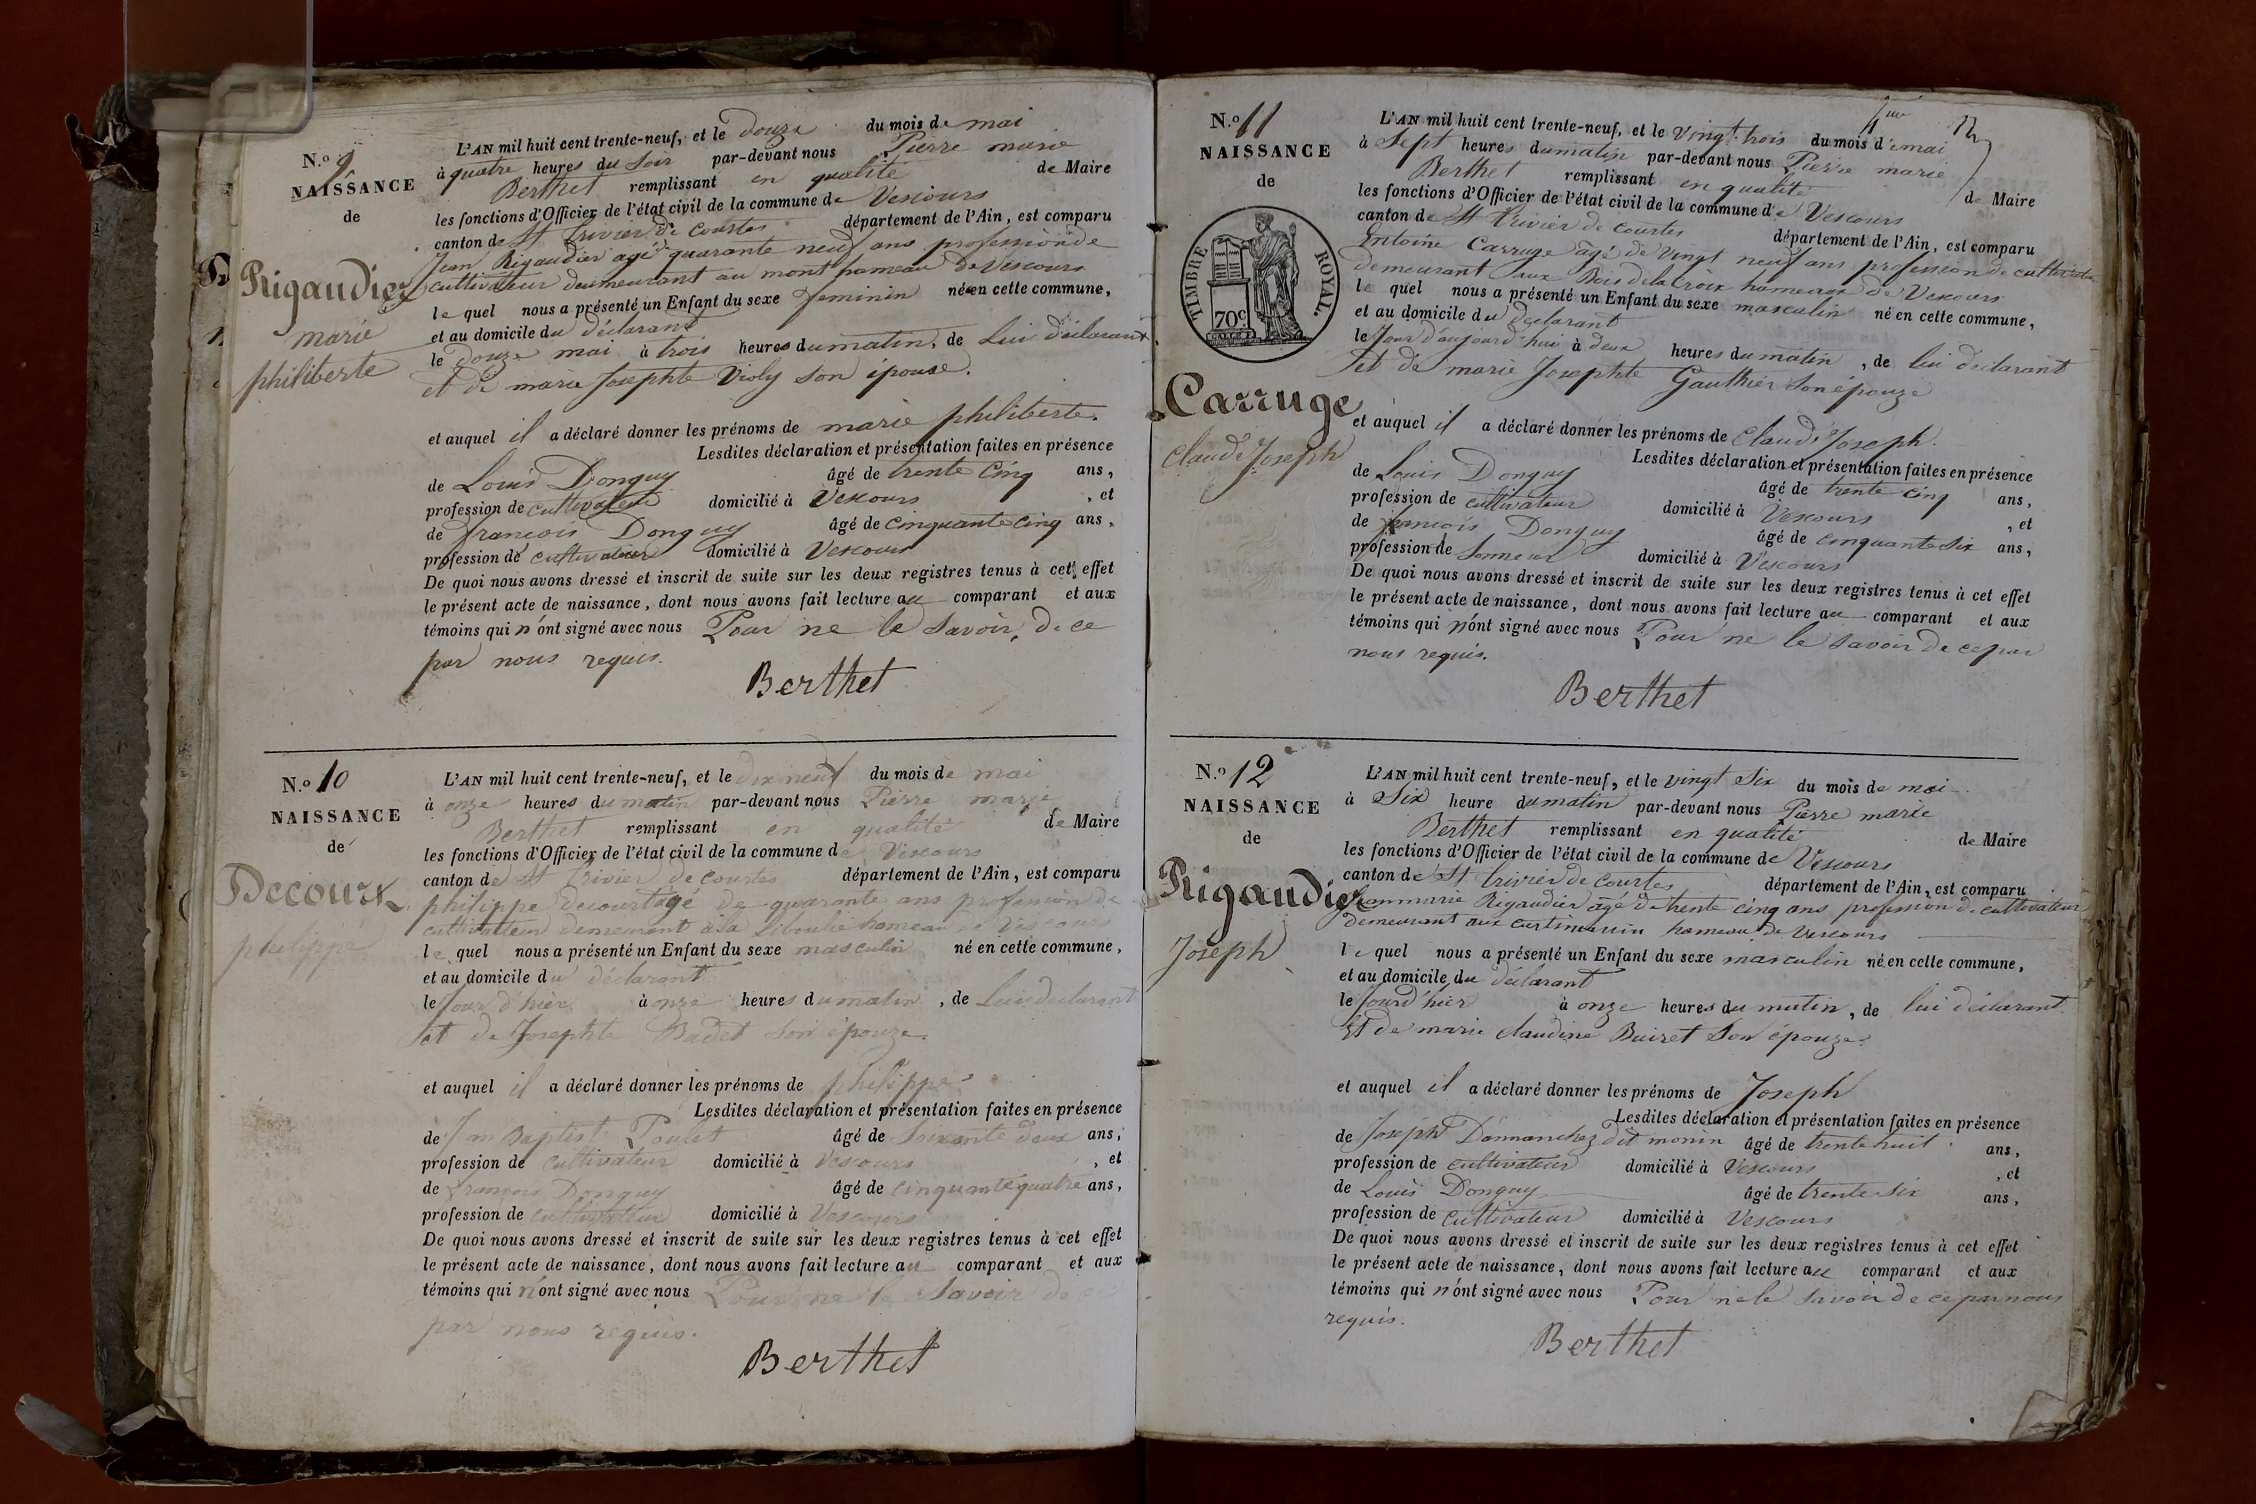 N.º 9
NAISSANCE
de
Rigaudier
marie
philiberte
L'AN mil huit cent trente-neuf, et le douze du mois de mai
à quatre heures du soir par-devant nous Pierre marie
Berthet remplissant en qualité de Maire
les fonctions d'Officier de l'état civil de la commune de Vescours
canton de St trivier de Courtes département de l'Ain, est comparu
Jean Rigaudier agé quarante neuf ans profession de
cultivateur demeurant au mont hameau de Vescours
le quel nous a présenté un Enfant du sexe feminin né en cette commune,
et au domicile du déclarant
le douze mai à trois heures du matin, de lui déclarant
et de marie Josephte Violy son épouse.
et auquel il a déclaré donner les prénoms de marie philiberte.
Lesdites déclaration et présentation faites en présence
de Louis Donguy âgé de trente cinq ans,
profession de cultivateur domicilié à Vescours , et
de francois Donguy âgé de cinquante cinq ans,
profession de cultivateur domicilié à Vescours
De quoi nous avons dressé et inscrit de suite sur les deux registres tenus à cet effet
le présent acte de naissance, dont nous avons fait lecture au comparant et aux
témoins qui n'ont signé avec nous Pour ne le savoir, de ce
par nous requis.
Berthet
N.º 10
NAISSANCE
de
Decourt
philippe
L'AN mil huit cent trente-neuf, et le dix neuf du mois de mai
à onze heures du matin par-devant nous Pierre marie
Berthet remplissant en qualité de Maire
les fonctions d'Officier de l'état civil de la commune de Vescours
canton de St trivier de courtes département de l'Ain, est comparu
philippe decourt agé de quarante ans profession de
cultivateur demeurant à la hameau de Vescours
le quel nous a présenté un Enfant du sexe masculin né en cette commune,
et au domicile du déclarant
le Jour d'hier à onze heures du matin, de lui declarant
et de Josephte Badet son épouze.
et auquel il a déclaré donner les prénoms de philippe
Lesdites déclaration et présentation faites en présence
de Jean Baptist Poulet âgé de soixante deux ans,
profession de cultivateur domicilié à Vescours , et
de francois Donguy âgé de cinquante quatre ans,
profession de cultivateur domicilié à Vescours
De quoi nous avons dressé et inscrit de suite sur les deux registres tenus à cet effet
le présent acte de naissance, dont nous avons fait lecture au comparant et aux
témoins qui n'ont signé avec nous Pour ne le savoir de ce
par nous requis.
Berthet
N.º 11
NAISSANCE
de
TIMBRE ROYAL.
70c
Carruge
Claude Joseph
L'AN mil huit cent trente-neuf, et le vingt-trois du mois de mai
à Sept heures du matin par-devant nous Pierre marie
Berthet remplissant en qualité de Maire
les fonctions d'Officier de l'état civil de la commune de Vescours
canton de St trivier de courtes département de l'Ain, est comparu
Antoine Carruge âgé de vingt neuf ans profession de cultivateur
demeurant aux Bois de la Croix hameau de Vescours
le quel nous a présenté un Enfant du sexe masculin né en cette commune,
et au domicile du declarant
le Jour d'aujourd'hui à deux heures du matin, de lui declarant
et de marie Josephte Gauthier son épouze
et auquel il a déclaré donner les prénoms de Claude Joseph.
Lesdites déclaration et présentation faites en présence
de Louis Donguy âgé de trente cinq ans,
profession de cultivateur domicilié à Vescours , et
de francois Donguy âgé de cinquante six ans,
profession de Sonneur domicilié à Vescours
De quoi nous avons dressé et inscrit de suite sur les deux registres tenus à cet effet
le présent acte de naissance, dont nous avons fait lecture au comparant et aux
témoins qui n'ont signé avec nous Pour ne le savoir de ce par
nous requis.
Berthet
N.º 12
NAISSANCE
de
Rigaudier
Joseph
L'AN mil huit cent trente-neuf, et le vingt six du mois de mai
à Six heure du matin par-devant nous Pierre marie
Berthet remplissant en qualité de Maire
les fonctions d'Officier de l'état civil de la commune de Vescours
canton de St trivier de Courtes département de l'Ain, est comparu
Jeanmarie Rigaudier âgé de trente cinq ans profession de cultivateur
demeurant aux hameau de Vescours
le quel nous a présenté un Enfant du sexe masculin né en cette commune,
et au domicile du déclarant
le Jour d'hier à onze heures du matin, de lui déclarant
Et de marie claudine Buiret son épouze.
et auquel il a déclaré donner les prénoms de Joseph
Lesdites déclaration et présentation faites en présence
de Joseph dit monin âgé de trente huit ans,
profession de cultivateur domicilié à Vescours , et
de Louis Donguy âgé de trente six ans,
profession de cultivateur domicilié à Vescours
De quoi nous avons dressé et inscrit de suite sur les deux registres tenus à cet effet
le présent acte de naissance, dont nous avons fait lecture au comparant et aux
témoins qui n'ont signé avec nous Pour ne le savoir de ce par nous
requis.
Berthet